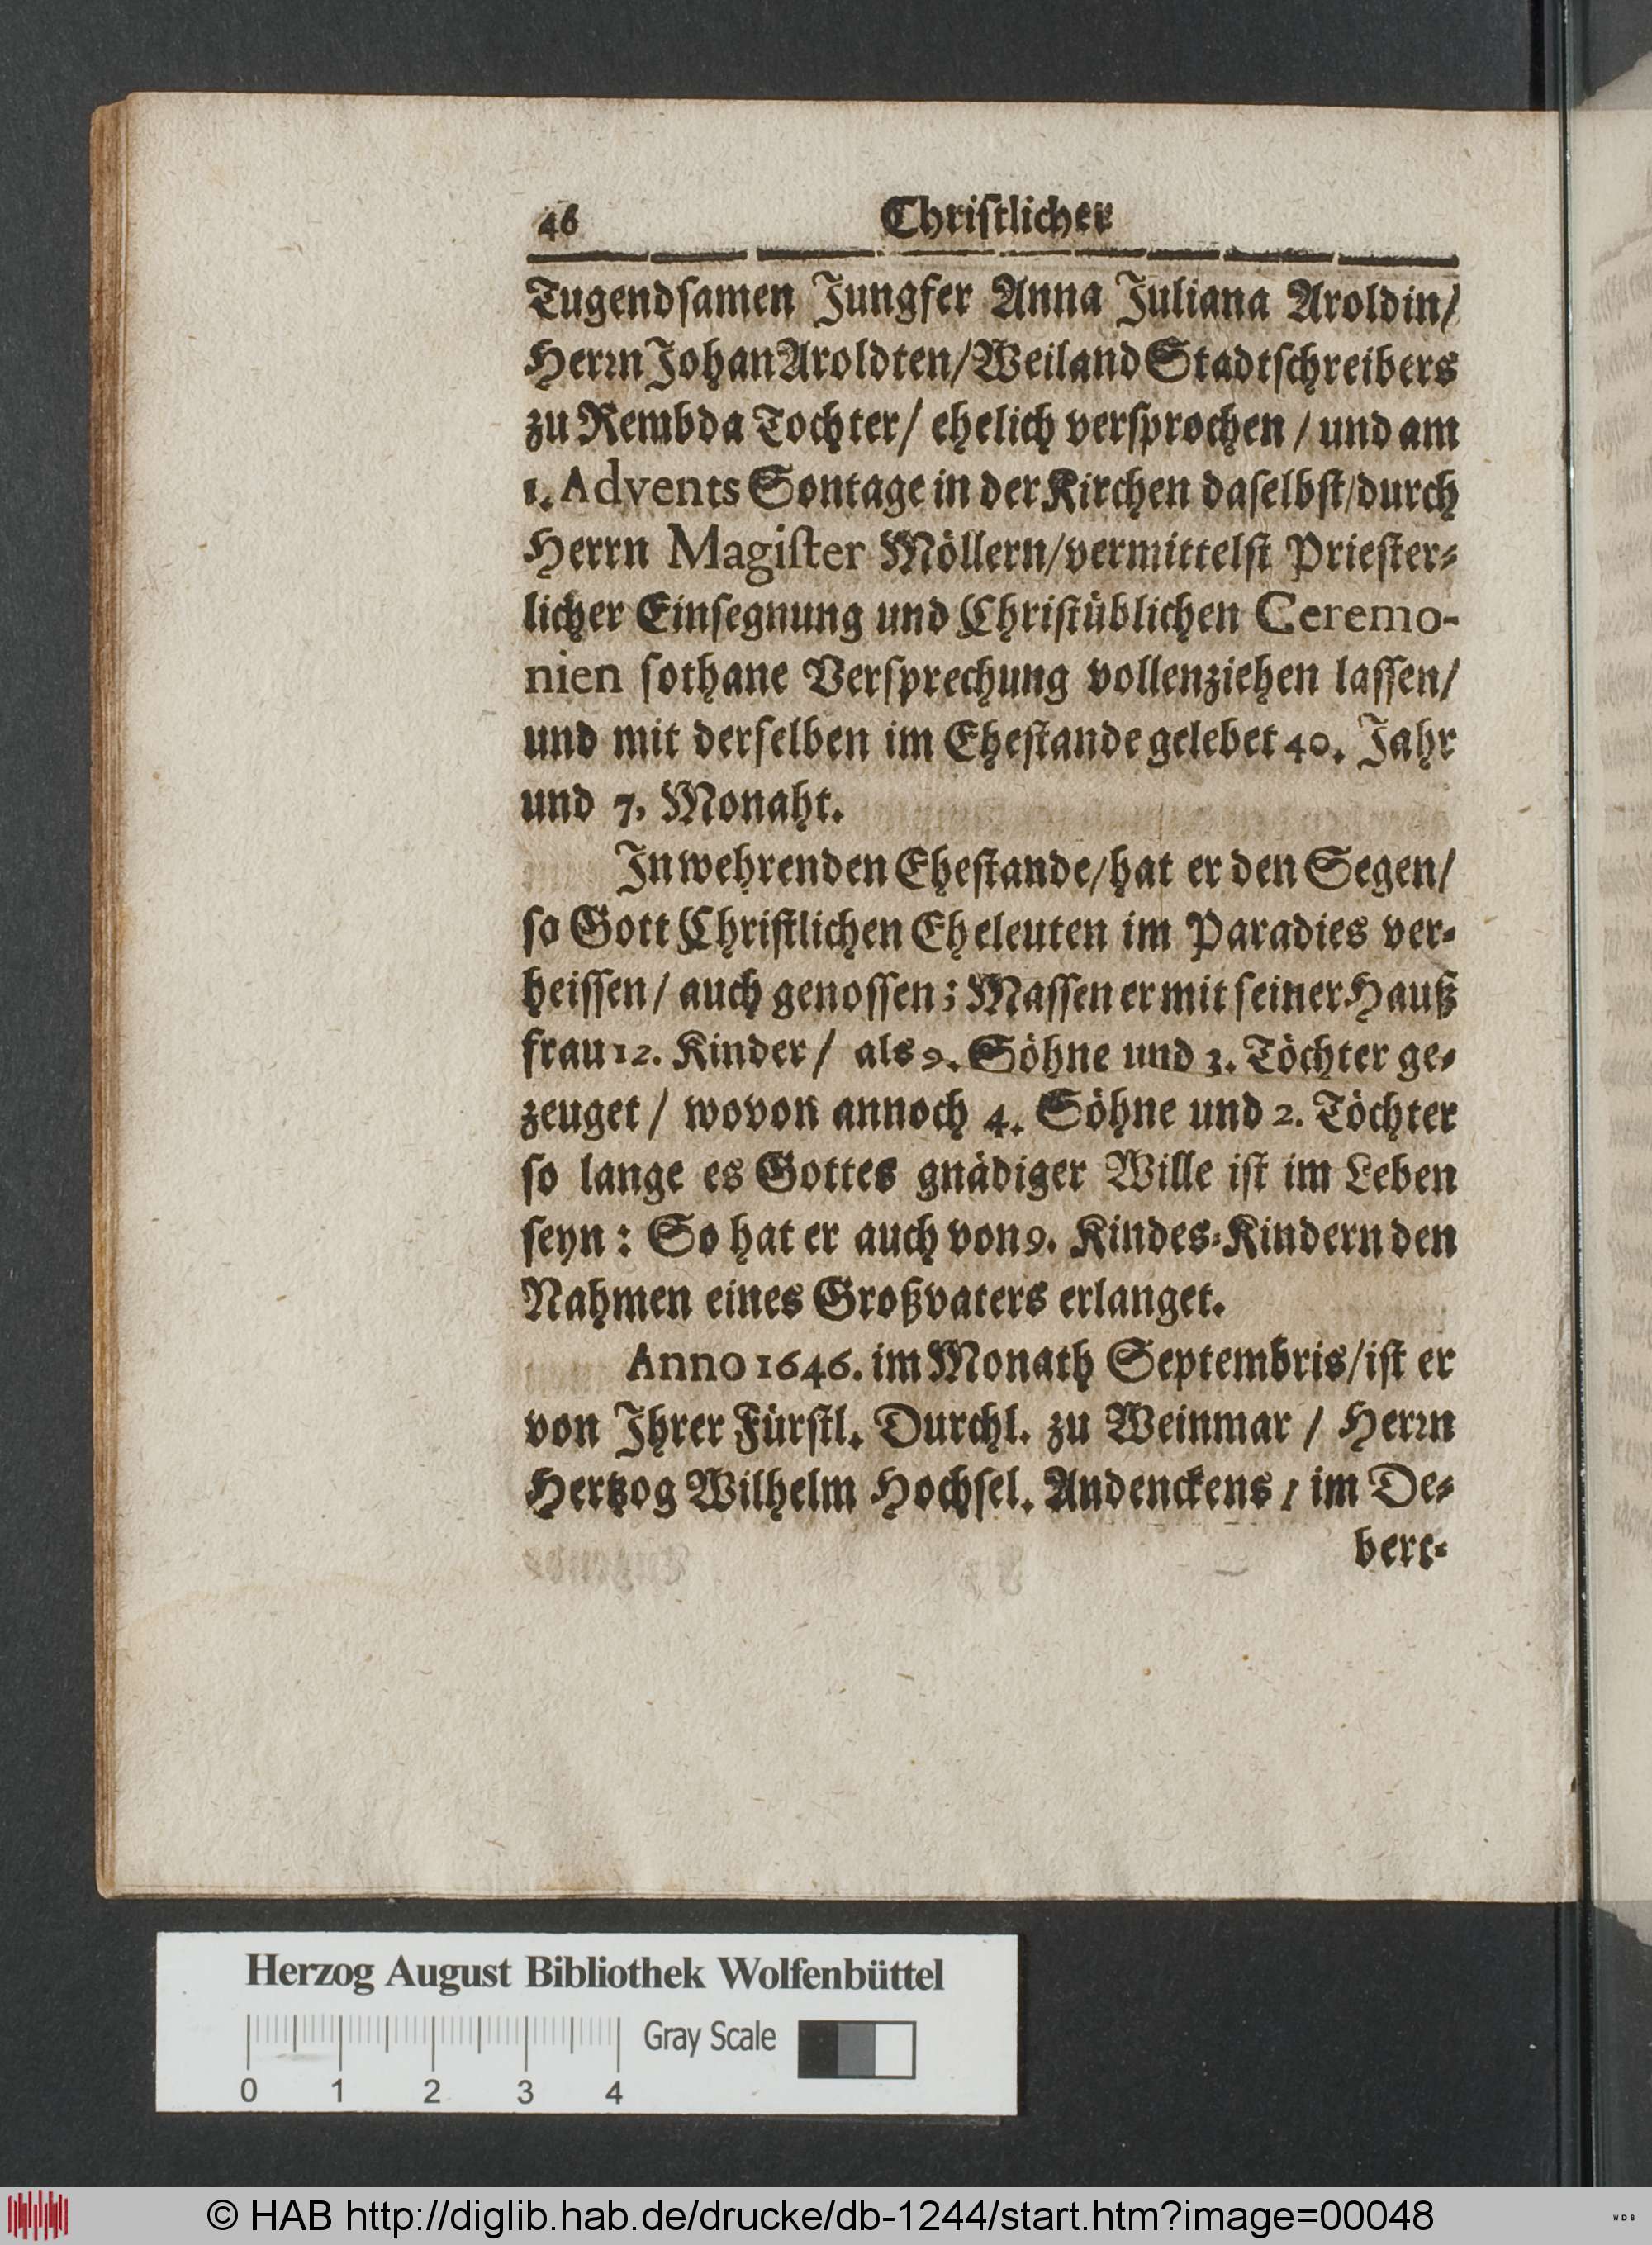 46 Christlicher
Tugendsamen Jungfer Anna Juliana Aroldin/
Herrn Johan Aroldten/Weiland Stadtschreibers
zu Rembda Tochter/ ehelich versprochen / und am
1. Advents Sontage in der Kirchen daselbst/durch
Herrn Magister Möllern/vermittelst Priester-
licher Einsegnung und Christüblichen Ceremo-
nien sothane Versprechung vollenziehen lassen/
und mit derselben im Ehestande gelebet 40. Jahr
und 7. Monaht.
In wehrenden Ehestande/hat er den Segen/
so Gott Christlichen Eheleuten im Paradies ver-
heissen/ auch genossen; Massen er mit seiner Hauß
frau 12. Kinder/ als 9. Söhne und 3. Töchter ge-
zeuget / wovon annoch 4. Söhne und 2. Töchter
so lange es Gottes gnädiger Wille ist im Leben
seyn: So hat er auch von 9. Kindes-Kindern den
Nahmen eines Großvaters erlanget.
Anno 1646. im Monath Septembris/ist er
von Ihrer Fürstl. Durchl. zu Weinmar / Herrn
Hertzog Wilhelm Hochsel. Andenckens / im De-
bert-
Herzog August Bibliothek Wolfenbüttel
Gray Scale
0 1 2 3 4
© HAB http://diglib.hab.de/drucke/db-1244/start.htm?image=00048
WDB